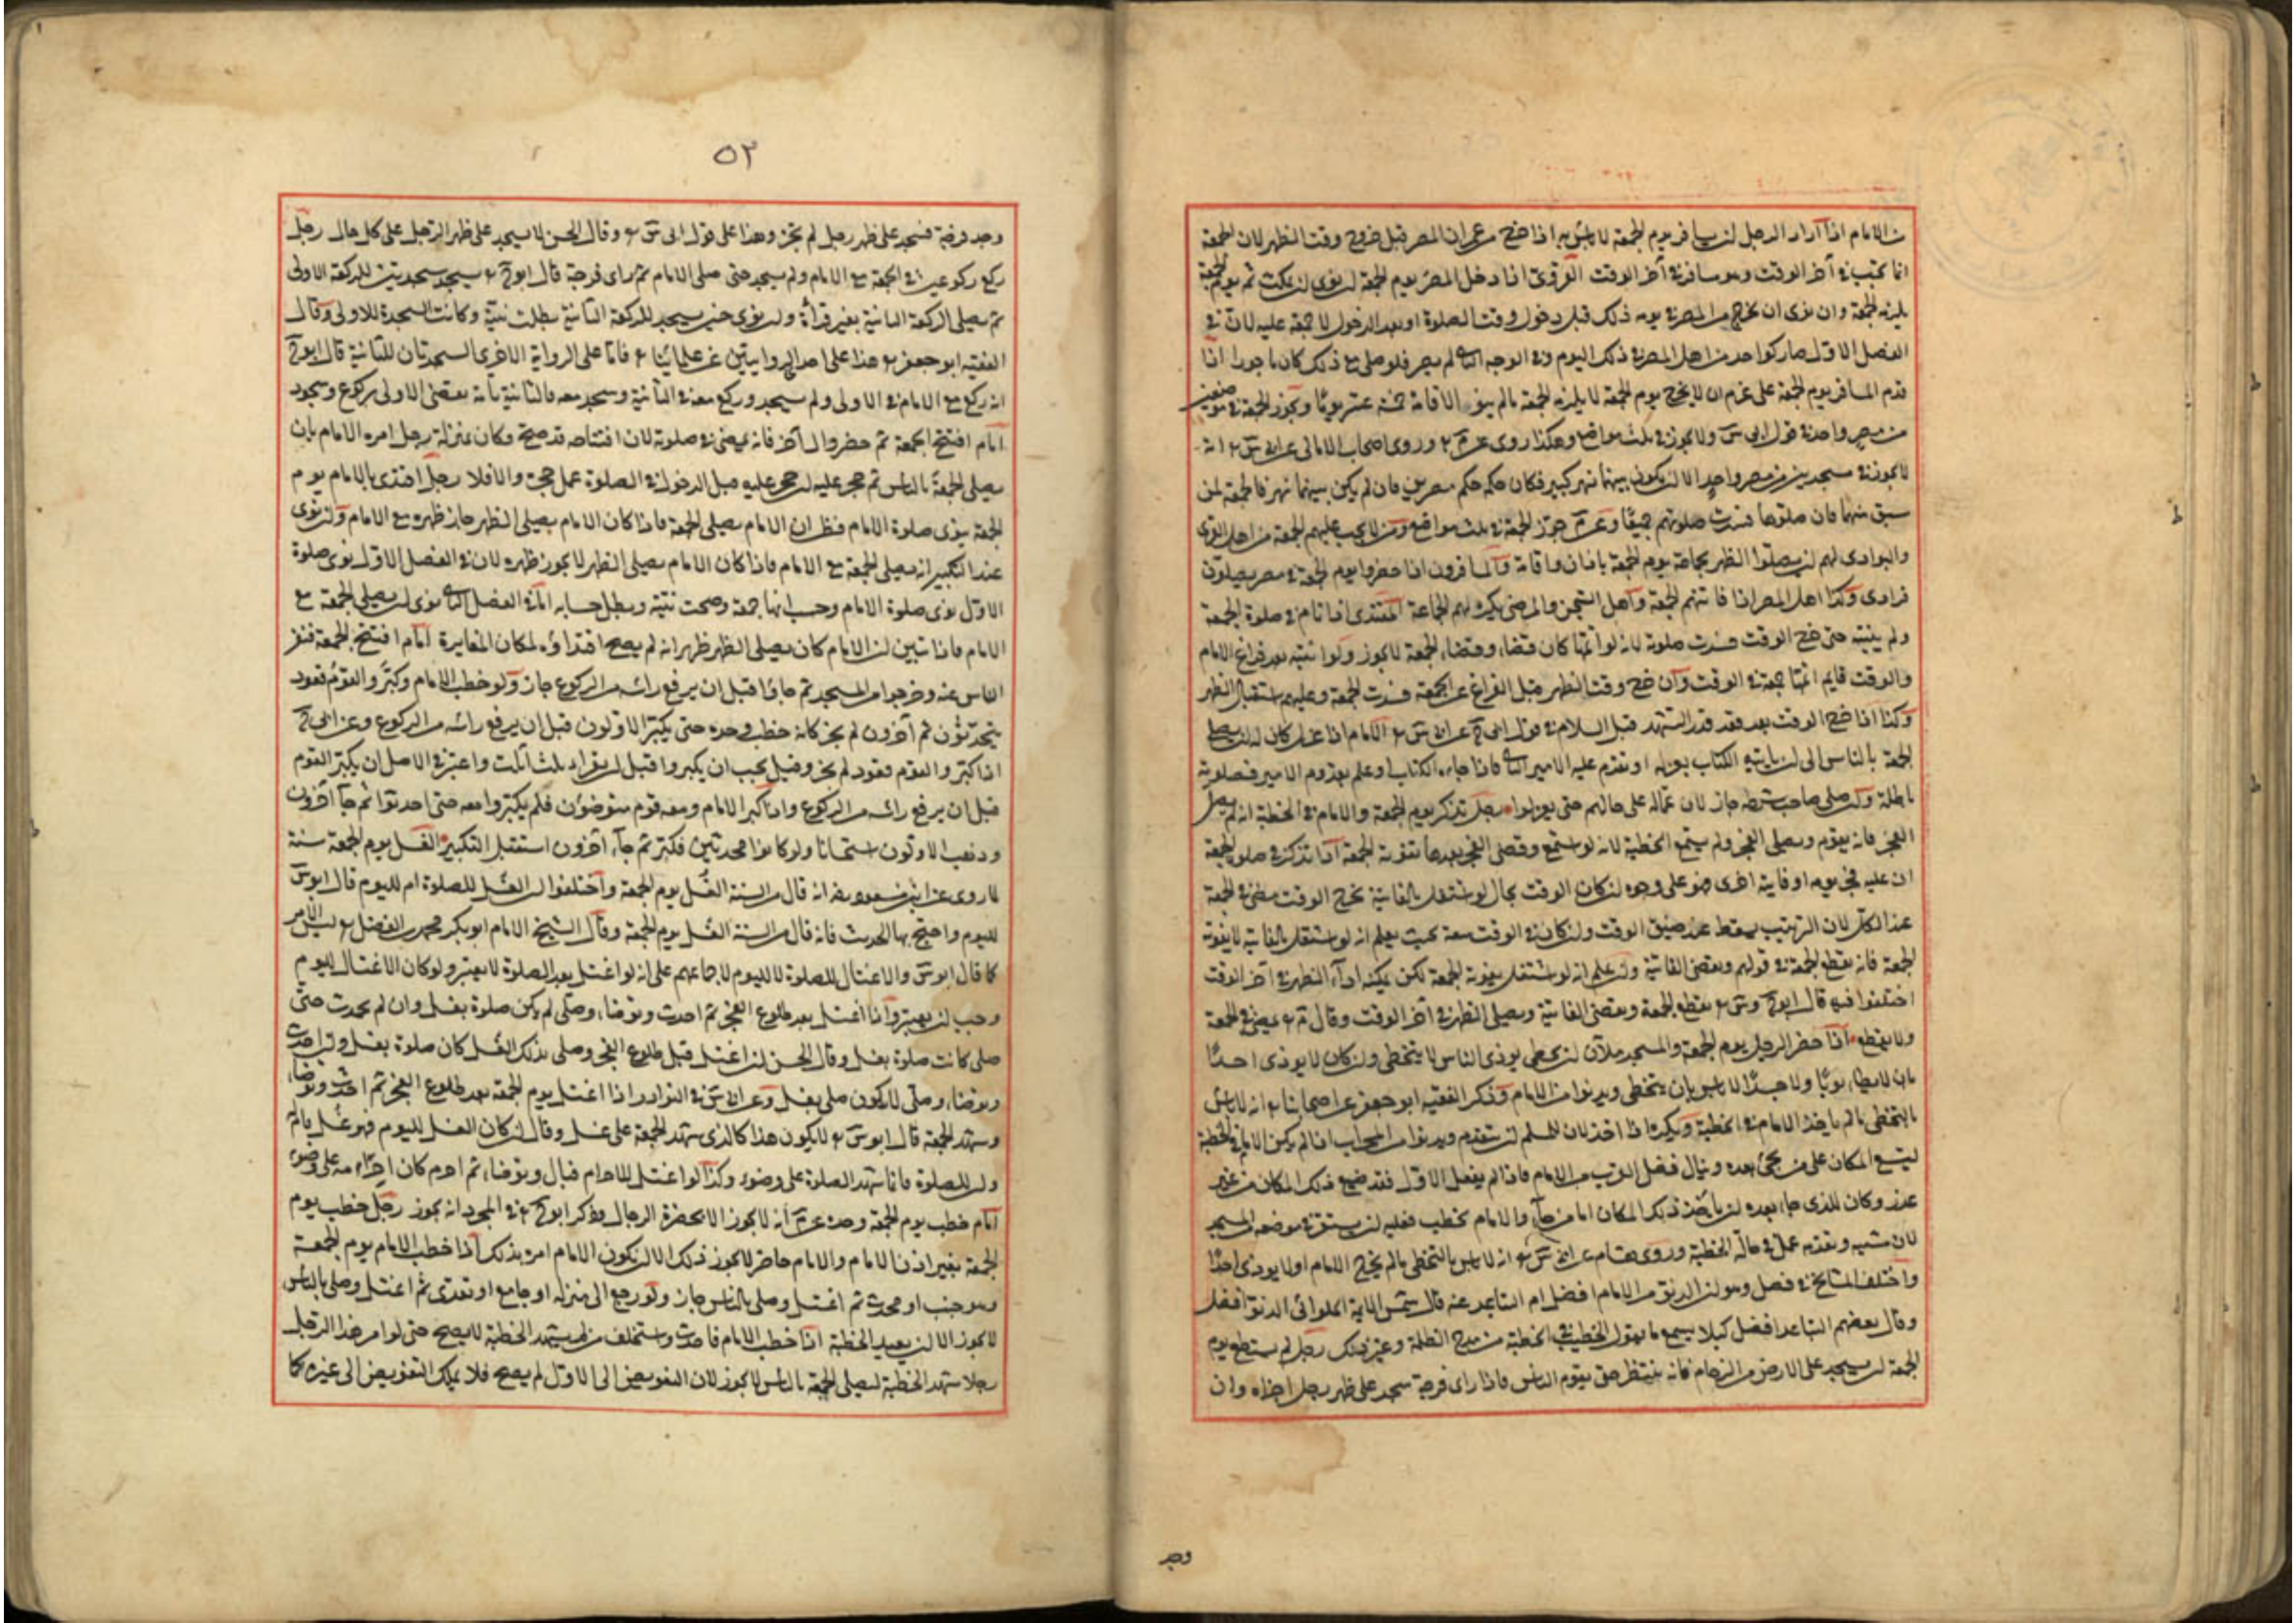 من الامام اذا اراد الرجل ان يسافر يوم الجمعة لا بأس به اذا خرج من عمران المصر قبل خروج وقت الظهر لان الجمعة
انما تجب في آخر الوقت وهو مسافر في آخر الوقت القروى اذا دخل المصر يوم الجمعة ان نوى ان يمكث ثم يوم الجمعة
يلزمه الجمعة وان نوى ان يخرج من المصر في يومه ذلك قبل دخول وقت الصلوة او بعد الدخول لا جمعة عليه لان في
الفصل الاول صار كواحد من اهل المصر في ذلك اليوم وفي الوجه الثاني لم يصر فلو صلى مع ذلك كان مأجورا اذا
قدم المسافر يوم الجمعة على عزم ان لا يخرج يوم الجمعة لا يلزمه الجمعة مالم ينو الاقامة خمسة عشر يوما وتجوز الجمعة في موضعين
من مصر واحد في قول ابى س ولا يجوز في ثلث مواضع وهكذا روى عن م وروى اصحاب الامالى عن ابى س انه
لا يجوز في مسجدين من مصر واحد الا ان يكون بينهما نهر كبير فكان حكمه حكم مصرين فان لم يكن بينهما نهر فالجمعة لمن
سبق منهما فان صلوا معا فسدت صلوتهم جميعا وعن م جوز الجمعة في ثلث مواضع ومن لا يجب عليهم الجمعة من اهل القرى
والبوادى لهم ان يصلوا الظهر بجماعة يوم الجمعة باذان واقامة والمسافرون اذا حضروا يوم الجمعة في مصر يصلون
فرادى وكذا اهل المصر اذا فاتتهم الجمعة وأهل السجن والمرضى يكره لهم الجماعة المقتدى اذا نام في صلوة الجمعة
ولم ينتبه حتى خرج الوقت فسدت صلوته لانه لو اتمها كان قضاء وقضاء الجمعة لا يجوز ولو انتبه بعد فراغ الامام
والوقت قايم اتمها جمعة في الوقت وان خرج وقت الظهر قبل الفراغ عن الجمعة فسدت الجمعة وعليهم استقبال الظهر
وكذا اذا خرج الوقت بعد قعد قدر التشهد قبل السلام في قول ابى ح عن ابى س الامام اذا عزل كان له ان يصلى
الجمعة بالناس الى ان يأتيه الكتاب بعزله او تقدم عليه الامير الثاني فاذا جاءه الكتاب او علم بقدوم الامير فصلوته
باطلة وان صلى صاحب شرطه جاز لان عماله على حالهم حتى يعزلوا رجل تذكر يوم الجمعة والامام في الخطبة انه لم يصل
الفجر فانه يقوم ويصلى الفجر ولم يستمع الخطبة لانه لو استمع وقضى الفجر بعدها تفوته الجمعة اذا تذكر في صلوة الجمعة
ان عليه فجر يومه او فايتة اخرى فهو على وجوه ان كان الوقت بحال لو اشتغل بالفايتة يخرج الوقت مضى في الجمعة
عند الكل لان الترتيب يسقط عند ضيق الوقت وان كان في الوقت سعة بحيث يعلم انه لو اشتغل بالفايتة لا يفوته
الجمعة فانه يقطع الجمعة في قولهم ويقضى الفايتة وان علم انه لو اشتغل يفوته الجمعة لكن يمكنه اداء الظهر في آخر الوقت
اختلفوا فيه قال ابو ح وس يقطع الجمعة ويقضى الفايتة ويصلى الظهر في آخر الوقت وقال م يمضى في الجمعة
ولا يقطع اذا حضر الرجل يوم الجمعة والمسجد ملآن ان تخطى يوذى الناس لا يتخطى وان كان لا يوذى احدا
بان لا يطأ ثوبا ولا جسدا لا بأس بان يتخطى ويدنو من الامام وذكر الفقيه ابو جعفر عن اصحابنا انه لا بأس
بالتخطى مالم يأخذ الامام في الخطبة ويكره اذا اخذ لان للمسلم ان يتقدم ويدنو من المحراب اذا لم يكن الامام في الخطبة
ليتسع المكان على من يجئ بعده وينال فضل القرب من الامام فاذا لم يفعل الاول فقد ضيع ذلك المكان من غير
عذر وكان للذى جاء بعده ان يأخذ ذلك المكان اما من جاء والامام يخطب فعليه ان يستقر في موضعه من المسجد
لان مشيه وتقدمه عمل في حالة الخطبة وروى هشام عن ابى س انه لا بأس بالتخطى مالم يخرج الامام او لا يوذى احدا
واختلف المشايخ في فصل وهو ان الدنو من الامام افضل ام التباعد عنه قال شمس الايمة الحلوائى الدنو افضل
وقال بعضهم التباعد افضل كيلا يسمع ما يقول الخطيب في الخطبة من مدح الظلمة وغير ذلك رجل لم يستطع يوم
الجمعة ان يسجد على الارض من الزحام فانه ينتظر حتى يقوم الناس فاذا راى فرجة سجد على ظهر رجل اجزاه وان
وجد
٥٢
وجد فرجة فسجد على ظهر رجل لم يجز وهذا على قول ابى س وقال الحسن لا يسجد على ظهر الرجل على كل حال رجل
ركع ركوعين في الجمعة مع الامام ولم يسجد حتى صلى الامام ثم راى فرجة قال ابو ح يسجد سجدتين للركعة الاولى
ثم يصلى الركعة الثانية بغير قرأة وان نوى حين يسجد للركعة الثانية بطلت نيته وكانت السجدة للاولى وقال
الفقيه ابو جعفر هذا على احد الروايتين عن علمائنا فاما على الرواية الاخرى السجدتان للثانية قال ابو ح
انه ركع مع الامام في الاولى ولم يسجد وركع معه في الثانية وسجد معه فالثانية تامة يقضى الاولى بركوع وسجود
امام افتتح الجمعة ثم حضر وال آخر فانه يمضى في صلوته لان افتتاحه قد صح وكان بمنزلة رجل امره الامام بان
يصلى الجمعة بالناس ثم حجر عليه ان حجر عليه قبل الدخول في الصلوة عمل حجره والا فلا رجل اقتدى بالامام يوم
الجمعة ينوى صلوة الامام فظن ان الامام يصلى الجمعة فاذا كان الامام يصلى الظهر جاز ظهره مع الامام وان نوى
عند التكبير انه يصلى الجمعة مع الامام فاذا كان الامام يصلى الظهر لا يجوز ظهره لان في الفصل الاول نوى صلوة
الاول نوى صلوة الامام وحسب انها جمعة وصحت نيته وبطل حسابه اما في الفصل الثاني نوى ان يصلى الجمعة مع
الامام فاذا تبين ان الامام كان يصلى الظهر ظهر انه لم يصح اقتداؤه لمكان المغايرة امام افتتح الجمعة فنفر
الناس عنه وخرجوا من المسجد ثم جاؤا قبل ان يرفع رأسه من الركوع جاز ولو خطب الامام وكبر والقوم قعود
يتحدثون ثم آخرون لم يجز كانه خطب وحده حتى يكبر الاولون قبل ان يرفع رأسه من الركوع وعن ابى ح
اذا كبر والقوم قعود لم يجز وقيل يجب ان يكبروا قبل ان يقرأ ثلث آيات واعتبر في الاصل ان يكبر القوم
قبل ان يرفع رأسه من الركوع واذا كبر الامام ومعه قوم متوضؤن فلم يكبروا معه حتى احدثوا ثم جاء آخرون
وذهب الاولون استحسانا ولو كانوا محدثين فكبر ثم جاء آخرون استقبل التكبير الغسل يوم الجمعة سنة
لما روى عن ابن مسعود رضه انه قال من السنة الغسل يوم الجمعة واختلفوا ان الغسل للصلوة ام لليوم قال ابو س
لليوم واحتج بهذا الحديث فانه قال من السنة الغسل يوم الجمعة وقال الشيخ الامام ابو بكر محمد بن الفضل ليس الامر
كما قال ابو س والاغتسال للصلوة لا لليوم لاجماعهم على انه لو اغتسل بعد الصلوة لا يعتبر ولو كان الاغتسال لليوم
وجب ان يعتبر واذا اغتسل بعد طلوع الفجر ثم احدث وتوضأ وصلى لم يكن صلوة بغسل وان لم يحدث حتى
صلى كانت صلوة بغسل وقال الحسن ان اغتسل قبل طلوع الفجر وصلى بذلك الغسل كان صلوة بغسل وان احدث
وتوضأ وصلى لا يكون صلى بغسل وعن ابى س في النوادر اذا اغتسل يوم الجمعة بعد طلوع الفجر ثم احدث وتوضأ
وشهد الجمعة قال ابو س لا يكون هذا كالذى شهد الجمعة على غسل وقال ان كان الغسل لليوم فهو غسل تام
وان للصلوة فانما شهد الصلوة على وضوء وكذا لو اغتسل للاحرام فبال وتوضأ ثم احرم كان احرامه على وضوء
امام خطب يوم الجمعة وحده عن م انه لا يجوز الا بحضرة الرجال وذكر ابو ح في المجرد انه يجوز رجل خطب يوم
الجمعة بغير اذن الامام والامام حاضر لا يجوز ذلك الا ان يكون الامام امره بذلك اذا خطب الامام يوم الجمعة
وهو جنب او محدث ثم اغتسل وصلى بالناس جاز ولو رجع الى منزله او جامع او تغدى ثم اغتسل وصلى بالناس
لا يجوز الا ان يعيد الخطبة اذا خطب الامام فاحدث واستخلف من لم يشهد الخطبة لا يصح حتى لو امر هذا الرجل
رجلا شهد الخطبة ليصلى الجمعة بالناس لا يجوز لان التفويض الى الاول لم يصح فلا يملك التفويض الى غيره كما